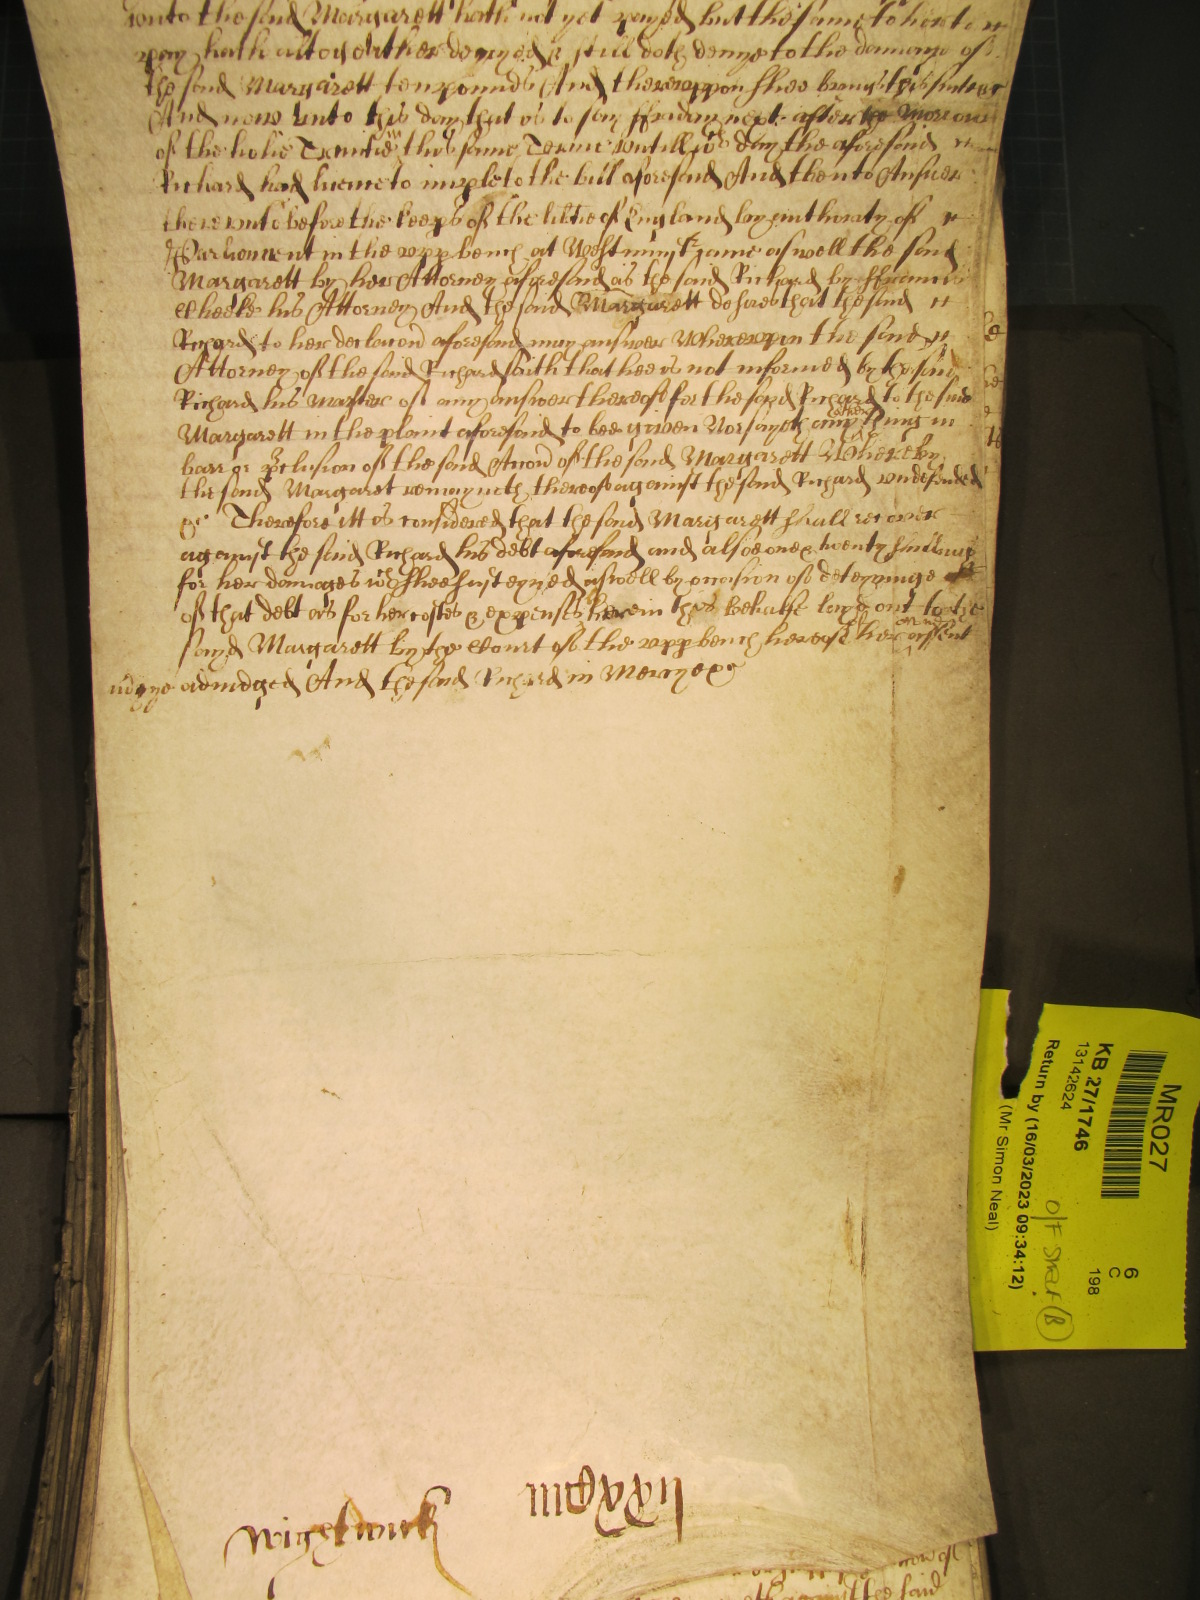 unto the said Margarett hath not yet payed but the same to her to
pay hath altogeather denyed & still doth denye to the damage of
the said Margarett ten pounds And thereuppon shee brings this suite &c
And now unto this day that is to say ffriday next after the Morrow
of the holie Trinitie in this same Terme untill wch day the aforesaid
Richard had licence to imple to the bill aforesaid And then to Answer
thereunto before the keeps of the libtie of England by authority of
Parliament in the upp bench at Westminstr came aswell the said
Margarett by her Attorney aforesaid as the said Richard by ffrancis
Cheeke his Attorney And the said Margarett desires that the said
Richard to her declaracon aforesaid may answer Whereuppon the same
Attorney of the said Richard saith that hee is not informed by the said
Richard his Master of any answer thereof for the said Richard to the said
Margarett in the plaint aforesaid to bee given Nor sayeth any thing in
barr or pclusion of the said Accon of the said Margarett Whereby
the said Margaret remayneth thereof against the said Richard undefended
&c Therefore itt is considered that the said Margarett shall recover
against the said Richard his debt aforesaid and alsoe one & twenty shillings
for her damages wch shee susteyned aswell by occasion of deteyninge
of that debt as for her costes & expenses herein this behalfe layd out to the
sayd Margarett by the Court of the upp bench here of her assent
adiudged And the said Richard in Mercy &c
MR027
KB 27/1746
13142624
Return by (16/03/2023 09:34:12)
(Mr Simon Neal)
6
C
198
O/F Shelf (B)
Wightwick